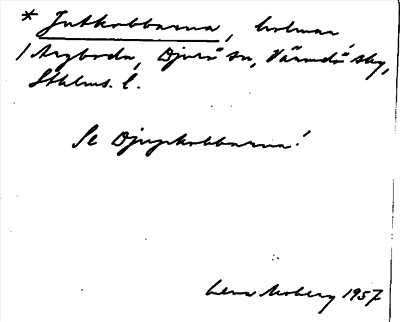 * Jutkobbarna, holmar,
/ Aspboda, Djurö sn, Värmdö sky,
Sthlms. l.
Se Djupkobbarna!
Lena Moberg 1957